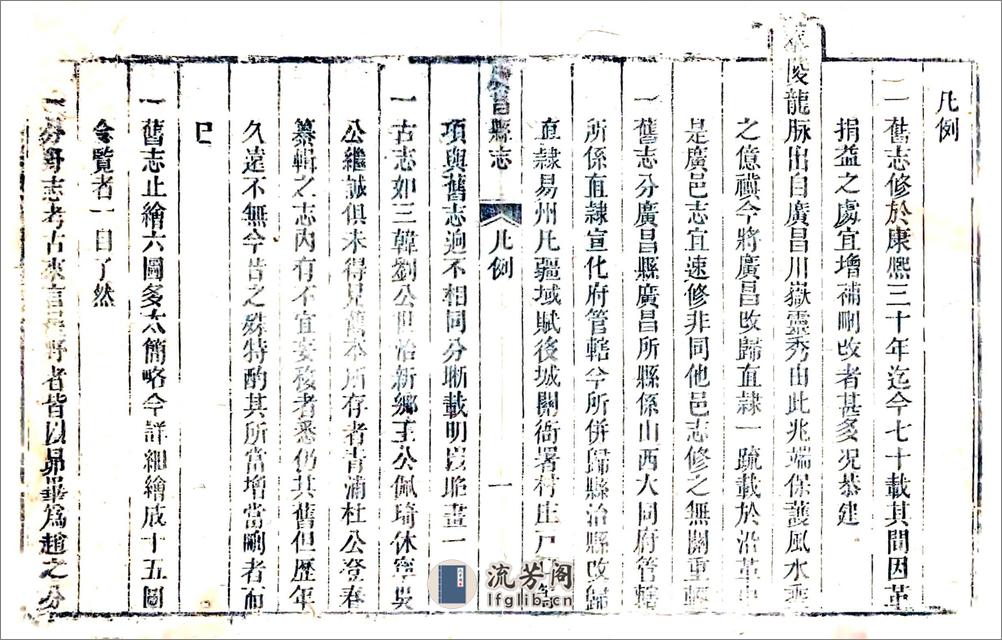 凡例
一舊志修於康熙三十年迄今七十載其間因革
損益之處宜增補刪改者甚多况恭建
陵龍脉出自廣昌川嶽靈秀由此兆端保護風水
之億禩今將廣昌改歸直隸一疏載於沿革
是廣邑志宜速修非同他邑志修之無關重輕
一舊志分廣昌縣廣昌所縣係山西大同府管轄
所係直隸宣化府管轄今所併歸縣治縣改歸
直隸易州凡疆域賦後城關衙署村庄戸
項與舊志逈不相同分晰載明以昭畫一
廣昌縣志
凡例
一
一古志如三韓劉公世治新鄉王公佩琦休寧吳
公繼誠俱未得見舊本所存者青浦杜公登春
纂輯之志內有不宜妄移者悉仍其舊但歷年
久遠不無今昔之殊特酌其所當增當刪者而
已
一舊志止繪六圖多太簡略今詳細繪成十五圖
令覽者一目了然
一分野志考古來言星野者皆以昴畢爲趙之分
流芳阁
lfglib.cn